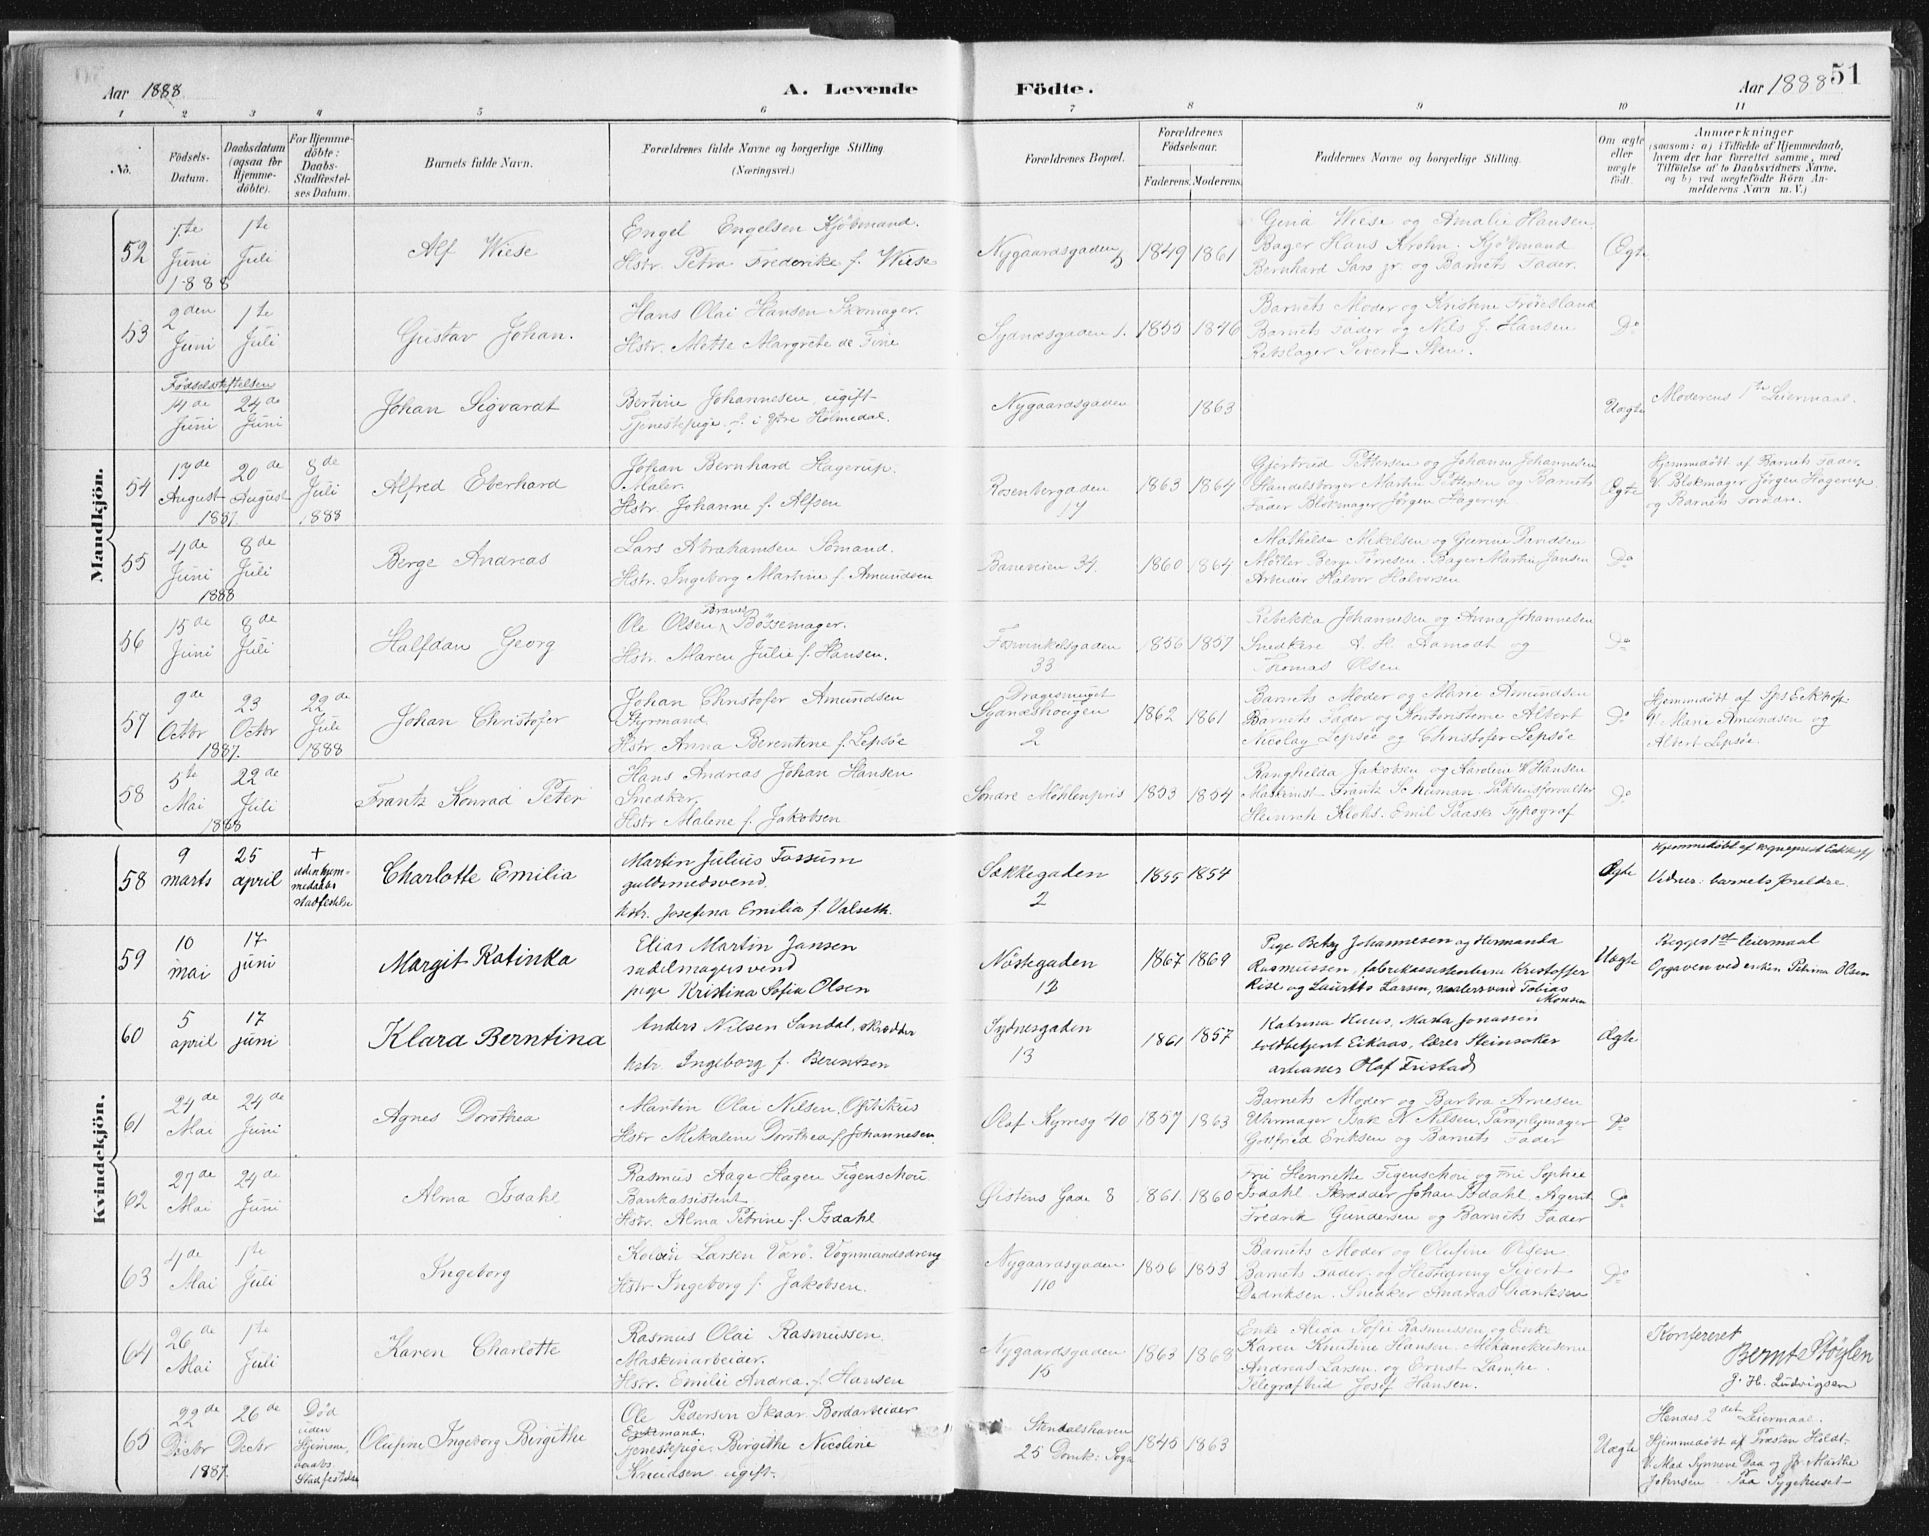 Aar 1888
A. Levende Födte.
Aar 1888
51
1 2 3 4 5 6 7 8 9 10 11
No.
Födsels-Datum.
Daabsdatum (ogsaa for Hjemme-döbte).
For Hjemme-döbte: Daabs-Stadfæstel-ses Datum.
Barnets fulde Navn.
Forældrenes fulde Navne og borgerlige Stilling (Næringsvei.)
Forældrenes Bopæl.
Forældrenes Födselsaar.
Faderens. Moderens.
Faddernes Navne og borgerlige Stilling.
Om ægte eller uægte födt.
Anmærkninger
(saasom: a) i Tilfælde af Hjemmedaab, hvem der har forrettet samme, med Tilföielse af to Daabsvidners Navne, og b) ved uægtefödte Börn An-melderens Navn m. V.)
Mandkjön.
52
1ste Juni 1888
1ste Juli
Alf Wiese
Engel Engelsen Kjøbmand.
Hstr. Petra Frederike f. Wiese
Nygaardsgaden
1849 1861
Gina Wiese og Amalie Hansen
Bager Hans Krohn. Kjøbmand
Bernhard Sars jr. og Barnets Fader.
Ægte
53
2den Juni
1ste Juli
Gustav Johan.
Hans Olai Hansen Skomager.
Hstr. Mette Margrete de Fine
Sydnæsgaden 1.
1855 1846
Barnets Moder og Kristine
Barnets Fader og Nils J. Hansen
Rebslager Sivert Sten.
Do
Fødselsstiftelsen
14de Juni
24de Juni
Johan Sigvardt
Bertine Johannesen, ugift
Tjenestepige f. i Ytre Holmedal.
Nygaardsgaden
1863
Uægte
Moderens 1ste Leiermaal.
54
17de August 1887.
20de August
8de Juli 1888
Alfred Eberhard
Johan Bernhard Hagerup.
Maler.
Hstr. Johanne f. Alfsen
Rosenbergaden 17
1863 1864
Gjertrud Pettersen og Johanne Johannesen
Handelsborger Martin Pettersen og Barnets
Fader Blokmager Jørgen Hagerup
Ægte
Hjemmedøbt af Barnets Fader.
V. Blokmager Jørgen Hagerup
og Barnets Forældre.
55
4de Juni 1888
8de Juli
Berge Andreas
Lars Abrahamsen Sømand.
Hstr. Ingeborg Martine f. Amundsen
Baneveien 34.
1860 1864
Mathilde Mikelsen og Gurine Davidsen
Møller Berge Tørresen. Bager Martin Jansen
Arbeider Halvor Halvorsen
Do
56
15de Juni
8de Juli
Halfdan Georg
Ole Olsen Bøssemager.
Hstr. Maren Julie f. Hansen.
Forvinkelsgaden 33
1856 1857
Rebekka Johannesen og Anna Johannesen
Snedkere A. H. Aamodt og
Thomas Olsen
Do
57
9de Octbr 1887.
23 Octbr
22de Juli 1888
Johan Christofer
Johan Christofer Amundsen
Styrmand.
Hstr Anna Berentine f. Lepsøe
Dragesmuget
Sydnæshougen 2
1862 1861
Barnets Moder og Marie Amundsen
Barnets Fader og Kontoristerne Albert
Nicolay Lepsøe og Christofer Lepsøe
Do
Hjemmedøbt af Sps Eckhoff
V. Marie Amundsen og
Albert Lepsøe.
58
5te Mai 1888
22de Juli
Frantz Konrad Peter
Hans Andreas Johan Hansen
Snedker
Hstr Malene f. Jakobsen
Søndre Møhlenpris
1853 1854
Ranghilda Jakobsen og Karoline W Hansen
Maskinist Frantz Schuman. Pakhusforvalter
Heinrich Klohs. Emil Paaske Typograf
Do
Kvindekjön.
58
9 marts
25 april
+ uden hjem-medaabs stadfestelse
Charlotte Emilia
Martin Julius Fossum
guldsmedsvend.
hstr. Josefina Emilia f. Valseth.
Sækkegaden 2
1855 1854
Ægte
Hjemmedøbt af sogneprest Eckhoff
Vidner: barnets foreldre.
59
10 mai
17 juni
Margit Katinka
Elias Martin Jansen
sadelmagersvend
pige Kristina Sofia Olsen
Nøstegaden 13
1867 1869
Pige Betzy Johannesen og Hermanda
Rasmussen, fabrikassistenterne Kristoffer
Rise og Lauritz Larsen, malersvend Tobias
Monsen
Uægte
Begges 1ste leiermaal
Opgaven ved enken Petrina Olsen
60
5 april
17 juni
Klara Berntina
Anders Nilsen Sandal, skrædder
hstr. Ingeborg f. Berentsen
Sydnesgaden 13
1861 1857
Katrina Huus, Marta Jonassen
toldbetjent Eikaas, lærer Steinsaker
artianer Olaf Fristad
Ægte
61
24de Mai
24de Juni
Agnes Dorothea
Martin Olai Nilsen, Optikus
Hstr Mikaline Dorothea f. Johannesen.
Olaf Kyrresg 40
1857 1863
Barnets Moder og Barbra Arnesen
Uhrmager Isak N Nilsen, Paraplymager
Gotfred Eriksen og Barnets Fader
Do
62
27de Mai
24de Juni
Alma Isdahl
Rasmus Aage Hagen Figenschou
Bankassistent.
Hstr. Alma Petrine f. Isdahl
Øistens Gade 8
1861. 1860
Fru Henriette Figenschou og Fru Sophie
Isdahl. Skrædder Johan Isdahl, Agent
Fredrik Gundersen og Barnets Fader
Do
63
4de Mai
1ste Juli
Ingeborg
Larsen Værø. Vognmandsdreng
Hstr Ingeborg f. Jakobsen.
Nygaardsgaden 110
1856 1853
Barnets Moder og Olufine Olsen
Barnets Fader. og Hestedreng Sivert
Didriksen. Snedker Andreas Didriksen
Do
64
26de Mai
1ste Juli
Karen Charlotte
Rasmus Olai Rasmussen.
Maskinarbeider.
Hstr. Emilie Andrea f. Hansen
Nygaardsgaden 15
1863 1868
Enke Alida Sofie Rasmussen og Enke
Karen Knutine Hansen. Mekanikuserne
Andreas Larsen. og Ernst Lampe.
Telegrafbud Josef Hansen.
Konfereret
Bernt Støylen
J. H. Ludvigsen
65
22de Decbr 1887.
26de Decbr
Død uden Hjemme-daabs Stadfæstelse
Olufine Ingeborg Birgithe
Ole Pedersen Skaar. Bordarbeider
Enkemand.
Tjenestepige. Birgithe Nicoline
Knudsen ugift.
Stendalshaven
25 Domk: Sogn
1845 1863
Uægte
Hendes 2det Leiermaal.
Hjemmedøbt af Præsten Holdt-
V. Mad Synneve Daa og Jfr Marthe
Johnsen. Paa Sygehuset